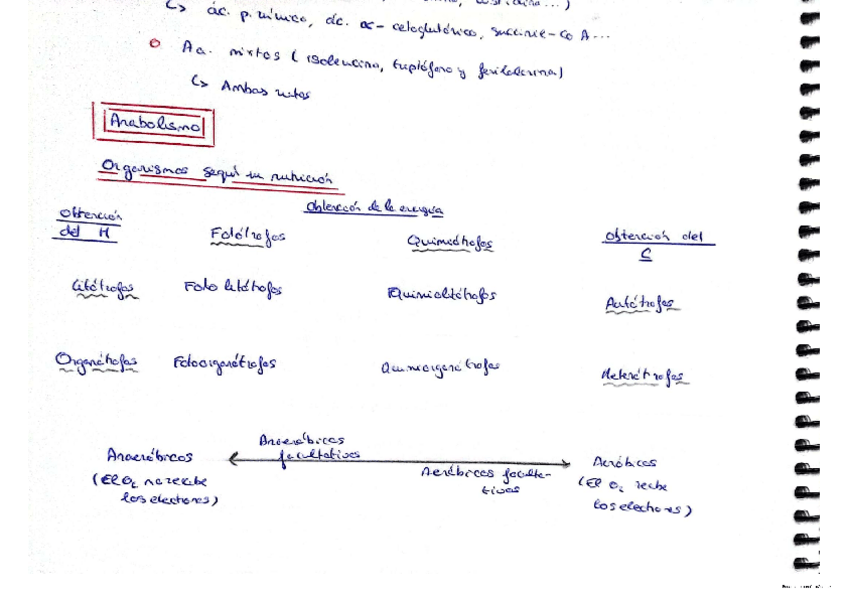 ↳ ác. pirúvico, ác. α-cetoglutárico, succinil-Co A...
o Aa. mixtos (isoleucina, triptófano y fenilalanina)
↳ Ambas rutas
Anabolismo
Organismos según su nutrición
Obtención de la energía
Obtención del H
Fotótrofos
Quimiótrofos
Obtención del C
Litótrofos
Foto litótrofos
Quimiolitótrofos
Autótrofos
Organótrofos
Fotoorganótrofos
Quimiorganótrofos
Heterótrofos
Anaeróbicos
facultativos
Anaeróbicos
Aeróbicos faculta-
tivos
Aeróbicos
(El O₂ no recibe
los electrones)
(El O₂ recibe
los electrones)